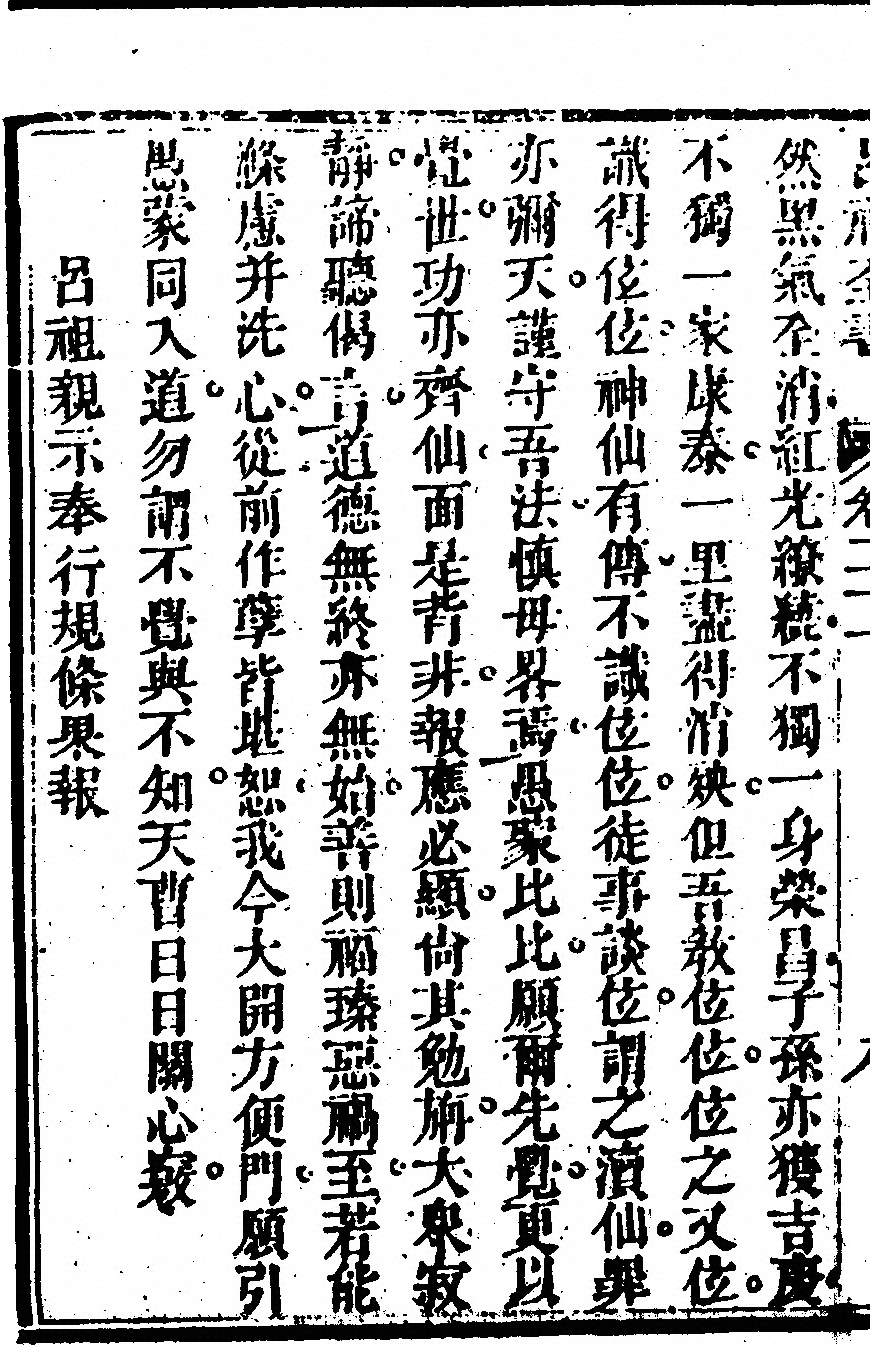 然黑氣全消紅光繚繞不獨一身榮昌子孫亦獲吉慶
不獨一家康泰一里盡得消殃但吾教位位位之又位
識得位位神仙有傳不識位位徒事談位謂之瀆仙罪
亦彌天謹守吾法慎毋畧焉愚衆比比願爾先覺更以
覺世功亦齊仙面是背非報應必顯尙其勉旃大衆寂
靜諦聽偈言道德無終亦無始善則福臻惡禍至若能
滌慮并洗心從前作孽皆堪恕我今大開方便門願引
愚蒙同入道勿謂不覺與不知天曹日日關心竅
呂祖親示奉行規條果報